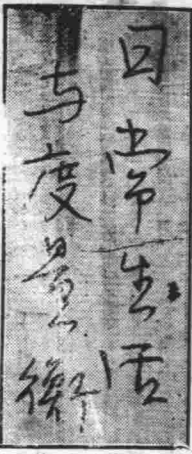 日常生活
与度量衡